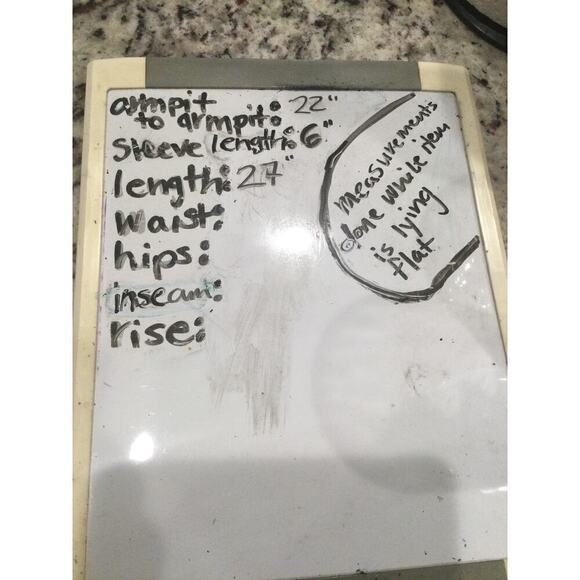 armpit
to armpit: 22"
sleeve length: 6"
length: 27"
waist:
hips:
inseam:
rise:
measurements
done while item
is lying
flat